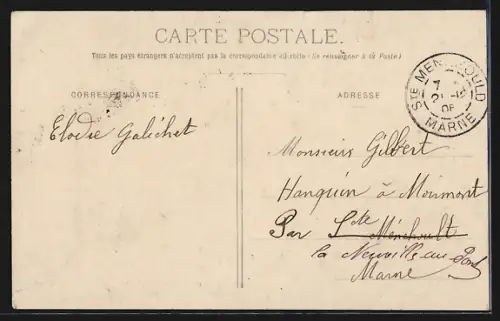 CARTE POSTALE.
Tous les pays étrangers n'acceptent pas la correspondance au recto (Se renseigner à la Poste)
CORRESPONDANCE
ADRESSE
Elodie Galichet
Monsieur Gilbert
Hanquin à Moirmont
Par Ste Ménehoult
la Neuville au Pont
Marne
STE MENEHOULD
MARNE